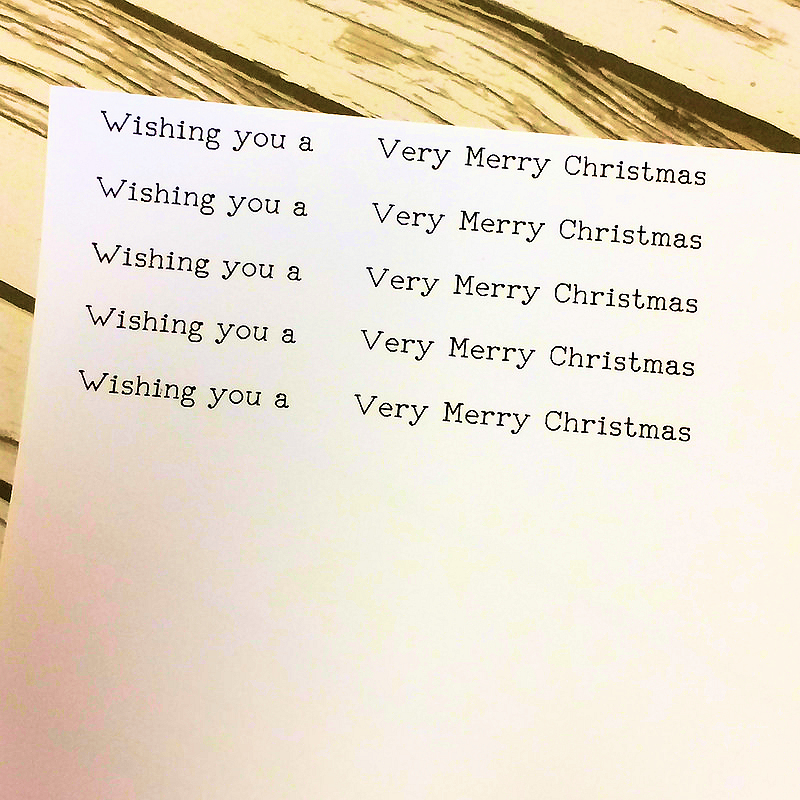 Wishing you a Very Merry Christmas
Wishing you a Very Merry Christmas
Wishing you a Very Merry Christmas
Wishing you a Very Merry Christmas
Wishing you a Very Merry Christmas